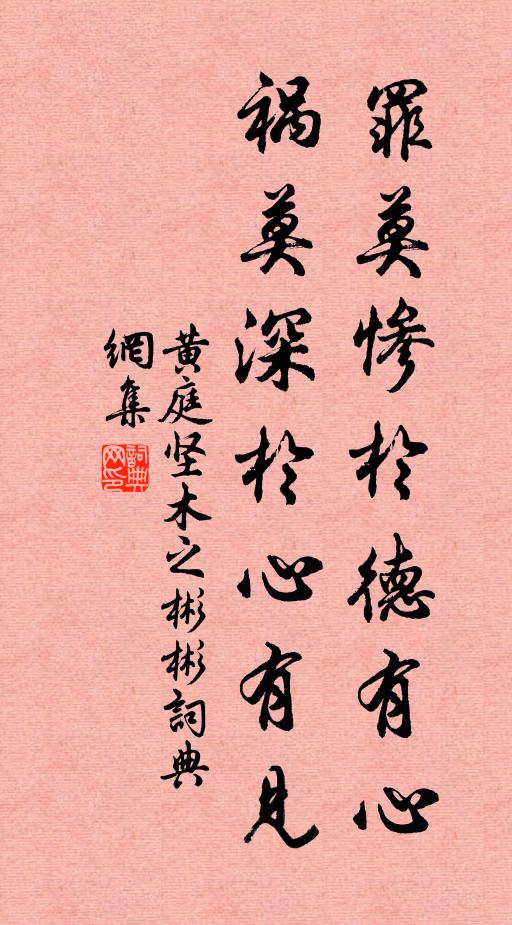 罪莫慘於德有心
祸莫深於心有見
黄庭坚木之彬彬詞典
網集
詞典
网印